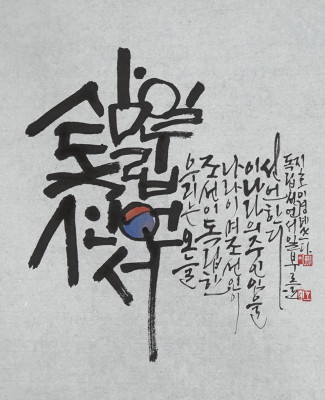 삼일
독립
선언서
우리는 오늘
조선이 독립한
나라이며 조선인이
이나라의 주인임을
선언한다
독립선언서 일부를
쓰다